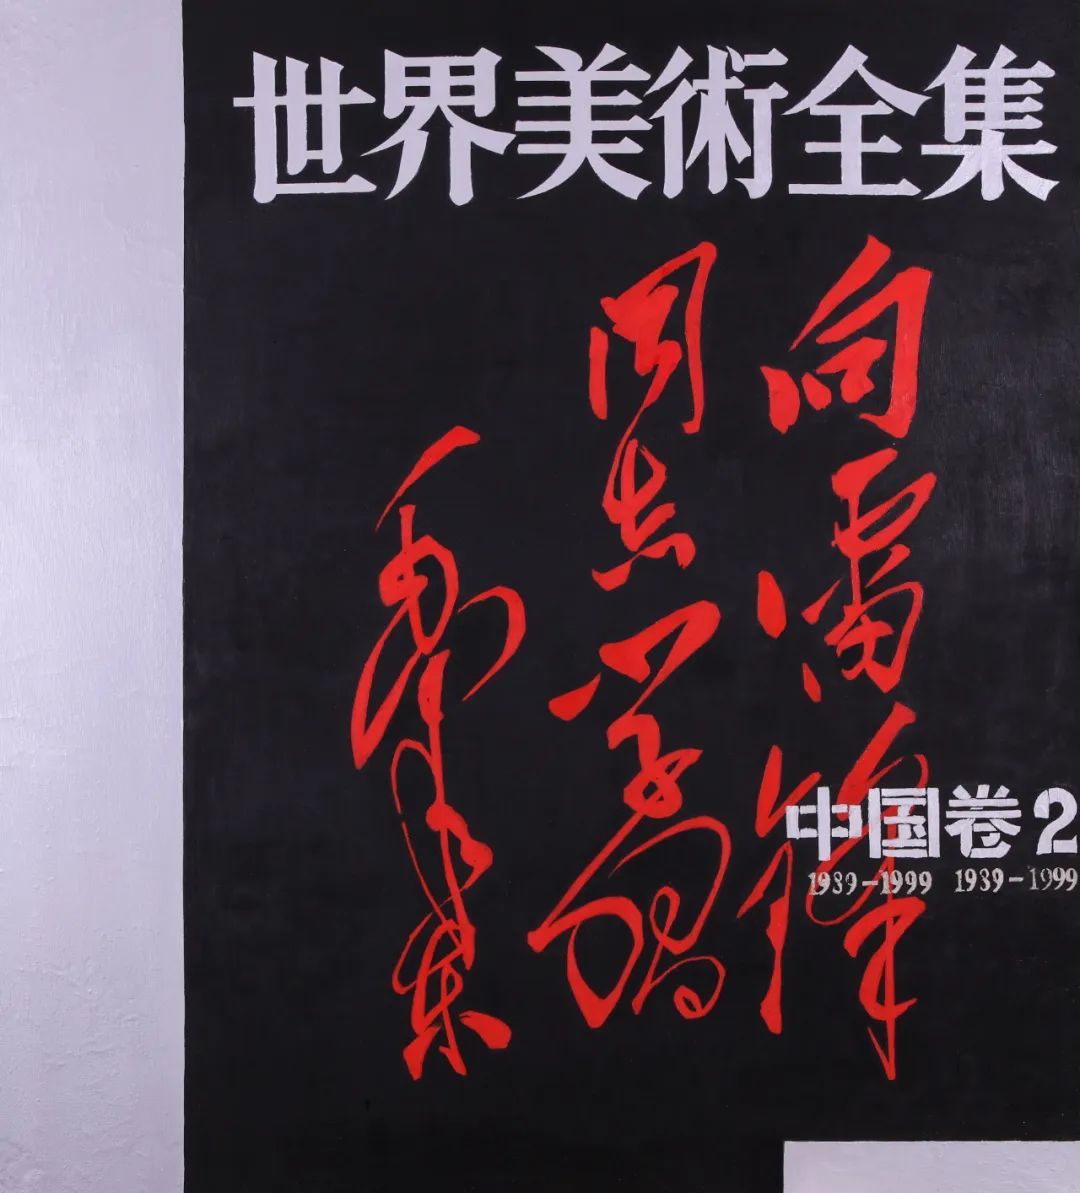 世界美術全集
向雷锋
同志学習
毛泽东
中国卷2
1939-1999 1939-1999